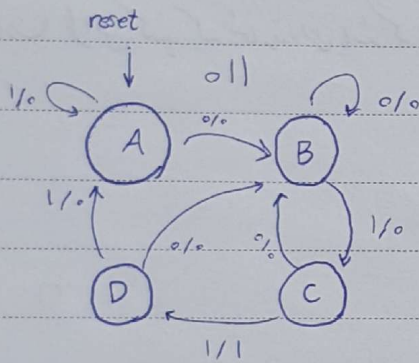 reset
011
1/0
0/0
0/0
A
B
1/0
0/0
0/0
1/0
D
C
1/1